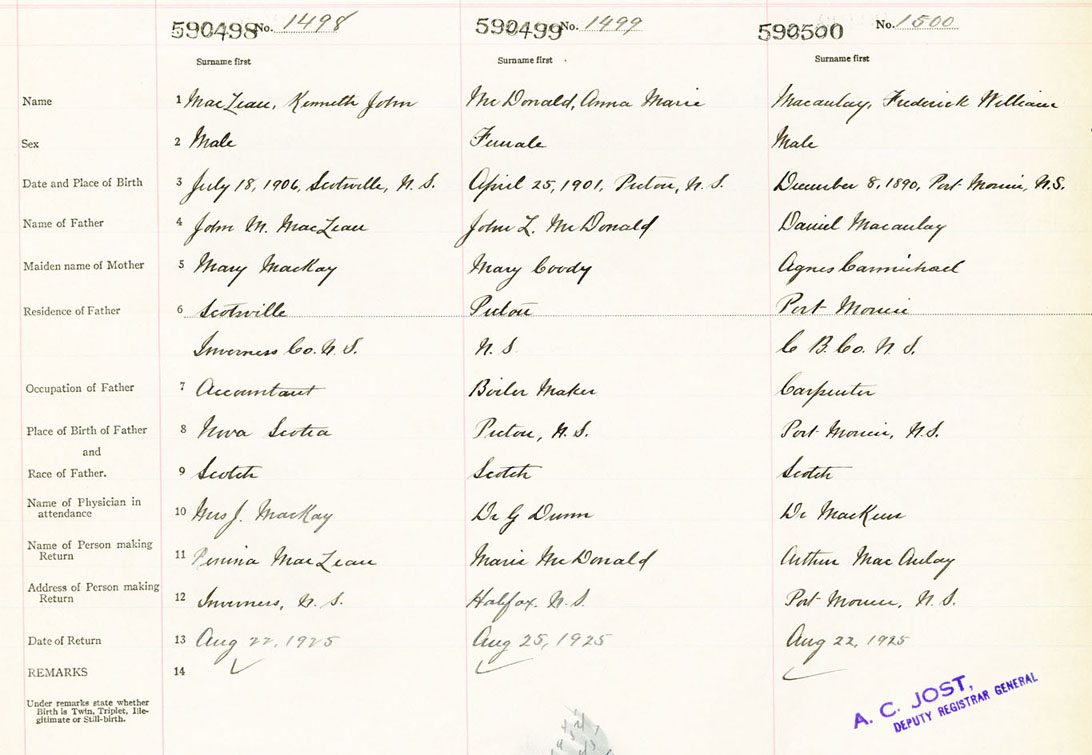 590498 No. 1498 590499 No. 1499 590500 No. 1500
Surname first Surname first Surname first
Name 1 MacLean, Kenneth John McDonald, Anna Marie Macaulay, Frederick William
Sex 2 Male Female Male
Date and Place of Birth 3 July 18, 1906, Scotsville, N. S. April 25, 1901, Pictou, N. S. December 8, 1890, Port Morien, N.S.
Name of Father 4 John M. MacLean John L. McDonald Daniel Macaulay
Maiden name of Mother 5 Mary MacKay Mary Coody Agnes Carmichael
Residence of Father 6 Scotsville Pictou Port Morien
Inverness Co. N. S. N. S. C. B. Co. N. S.
Occupation of Father 7 Accountant Boiler Maker Carpenter
Place of Birth of Father 8 Nova Scotia Pictou, N. S. Port Morien, N.S.
and
Race of Father. 9 Scotch Scotch Scotch
Name of Physician in
attendance 10 Mrs J. MacKay Dr G Dunn Dr MacKeen
Name of Person making
Return 11 MacLean Marie McDonald Arthur MacAulay
Address of Person making
Return 12 Inverness, N. S. Halfax. N. S. Port Morien, N. S.
Date of Return 13 Aug 22, 1925 Aug 25, 1925 Aug 22, 1925
REMARKS 14
Under remarks state whether
Birth is Twin, Triplet, Ille-
gitimate or Still-birth.
A. C. JOST,
DEPUTY REGISTRAR GENERAL